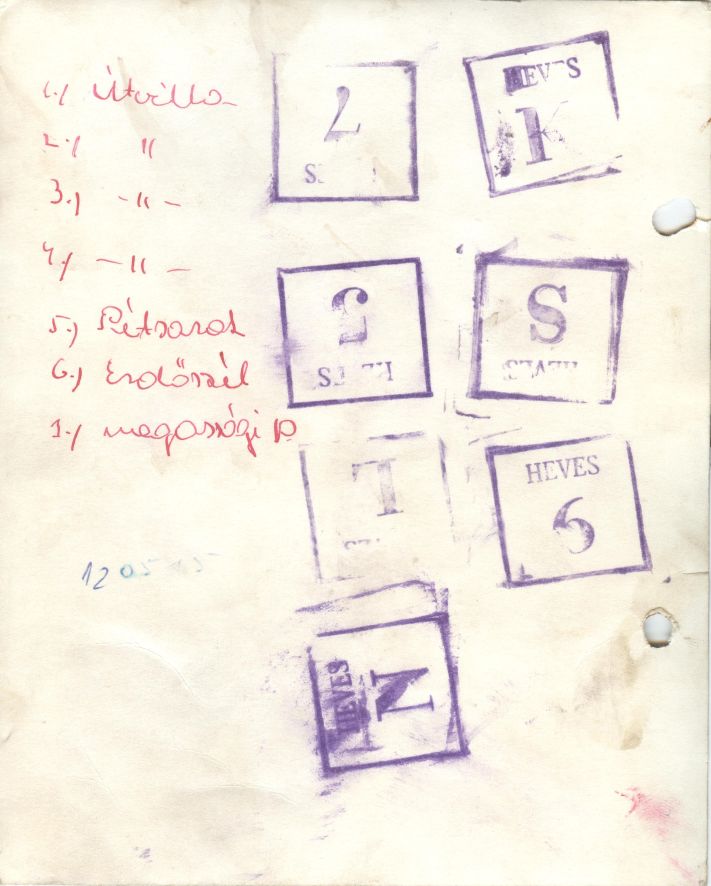 1./ Útvilla
2./ "
3./ -"-
4./ -"-
5.) Rétsarok
6.) Erdőszél
1./ magassági p.
12 05
HEVES
K
HEVES
S
HEVES
6
HEVES
N